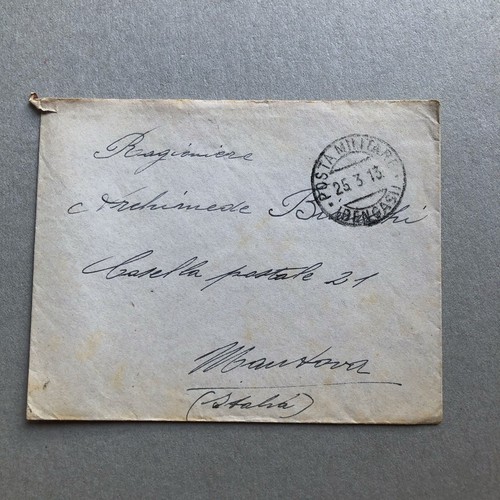 Ragioniere
Archimede
Casella postale 21
Mantova
(Italia)
POSTA MILITARE
25.3.13
BENGASI